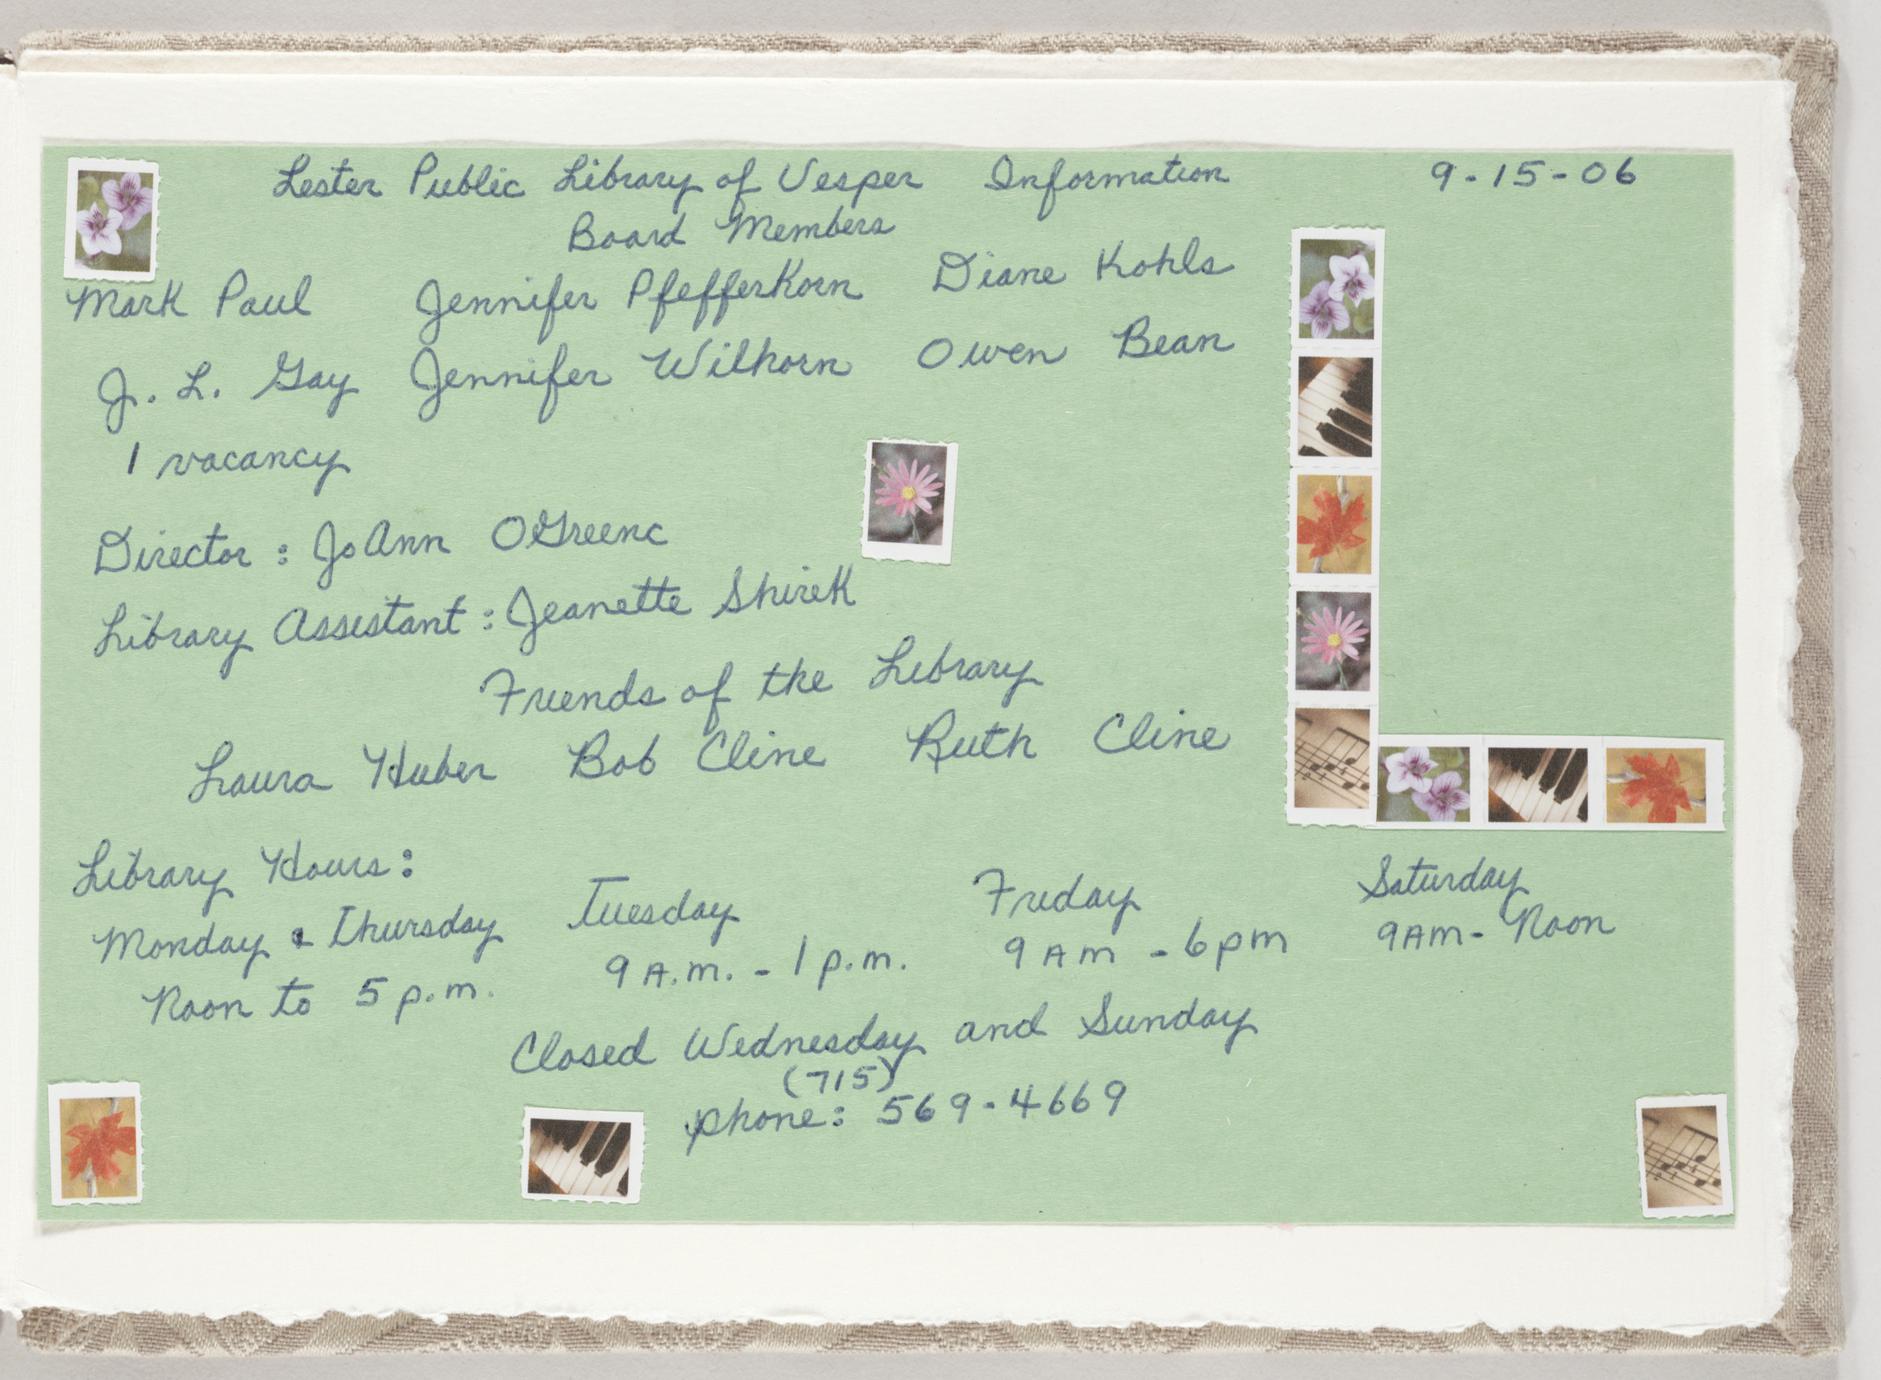 Lester Public Library of Vesper Information 9-15-06
Board Members
Mark Paul Jennifer Pfefferkorn Diane Kohls
J. L. Gay Jennifer Wilhorn Owen Bean
1 vacancy
Director: JoAnn OGreenc
Library Assistant: Jeanette Shirek
Friends of the Library
Laura Huber Bob Cline Ruth Cline
Library Hours:
Monday & Thursday Tuesday Friday Saturday
Noon to 5 p.m. 9 A.m. - 1 p.m. 9 AM - 6 pm 9AM - Noon
Closed Wednesday and Sunday
(715)
phone: 569-4669